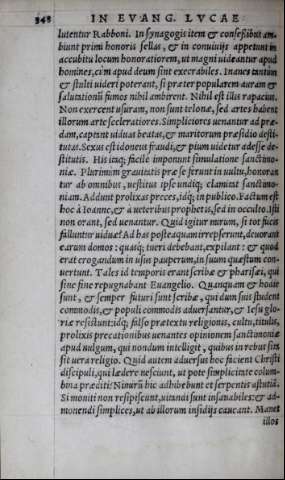 348 IN EVANG. LVCAE
lutentur Rabboni. In synagogis item & consessibus am-
biunt primi honoris sellas, & in conuiuijs appetunt in
accubitu locum honoratiorem, ut magni uideantur apud
homines, cùm apud deum sint execrabiles. Inanes tantùm
& stulti uideri poterant, si præter popularem auram &
salutationũ fumos nihil ambirent. Nihil est illis rapacius.
Non exercent usuram, non sunt telonæ, sed artes habent
illorum arte sceleratiores. Simpliciores uenantur ad præ-
dam, captant uiduas beatas, & maritorum præsidio desti-
tutas. Sexus est idoneus fraudi, & pium uidetur adesse de-
stitutis. His itaq; facile imponunt simulatione sanctimo-
niæ. Plurimùm grauitatis præ se ferunt in uultu, honoran
tur ab omnibus, uestitus ipse undiq; clamitat sanctimo-
niam. Addunt prolixas preces, idq; in publico. Factum est
hoc à Ioanne, & à ueteribus prophetis, sed in occulto. Isti
non orant, sed uenantur. Quid igitur mirum, si tot fucis
falluntur uiduæ? Ad has posteaquam irrepserunt, deuorant
earum domos: quasq; tueri debebant, expilant: & quod
erat erogandum in usus pauperum, in suum quæstum con-
uertunt. Tales id temporis erant scribæ & pharisæi, qui
sine fine repugnabant Euangelio. Quanquam & hodie
sunt, & semper futuri sunt scribæ, qui dum suis student
commodis, & populi commodis aduersantur, & Iesu glo-
riæ resistunt: idq; falso prætextu religionis, cultu, titulis,
prolixis precationibus uenantes opinionem sanctimoniæ
apud uulgum, qui nondum intelligit, quibus in rebus sita
sit uera religio. Quid autem aduersus hoc facient Christi
discipuli, qui lædere nesciunt, ut pote simplicitate colum-
bina præditi? Nimirũ hic adhibebunt et serpentis astutiã.
Si moniti non resipiscunt, uitandi sunt insanabiles: & ad-
monendi simplices, ut ab illorum insidijs caueant. Manet
illos